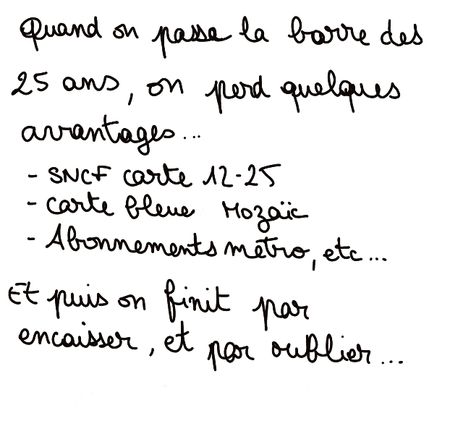 Quand on passe la barre des
25 ans, on perd quelques
avantages...
- SNCF carte 12-25
- carte bleue Mozaïc
- Abonnements métro, etc...
Et puis on finit par
encaisser, et par oublier...